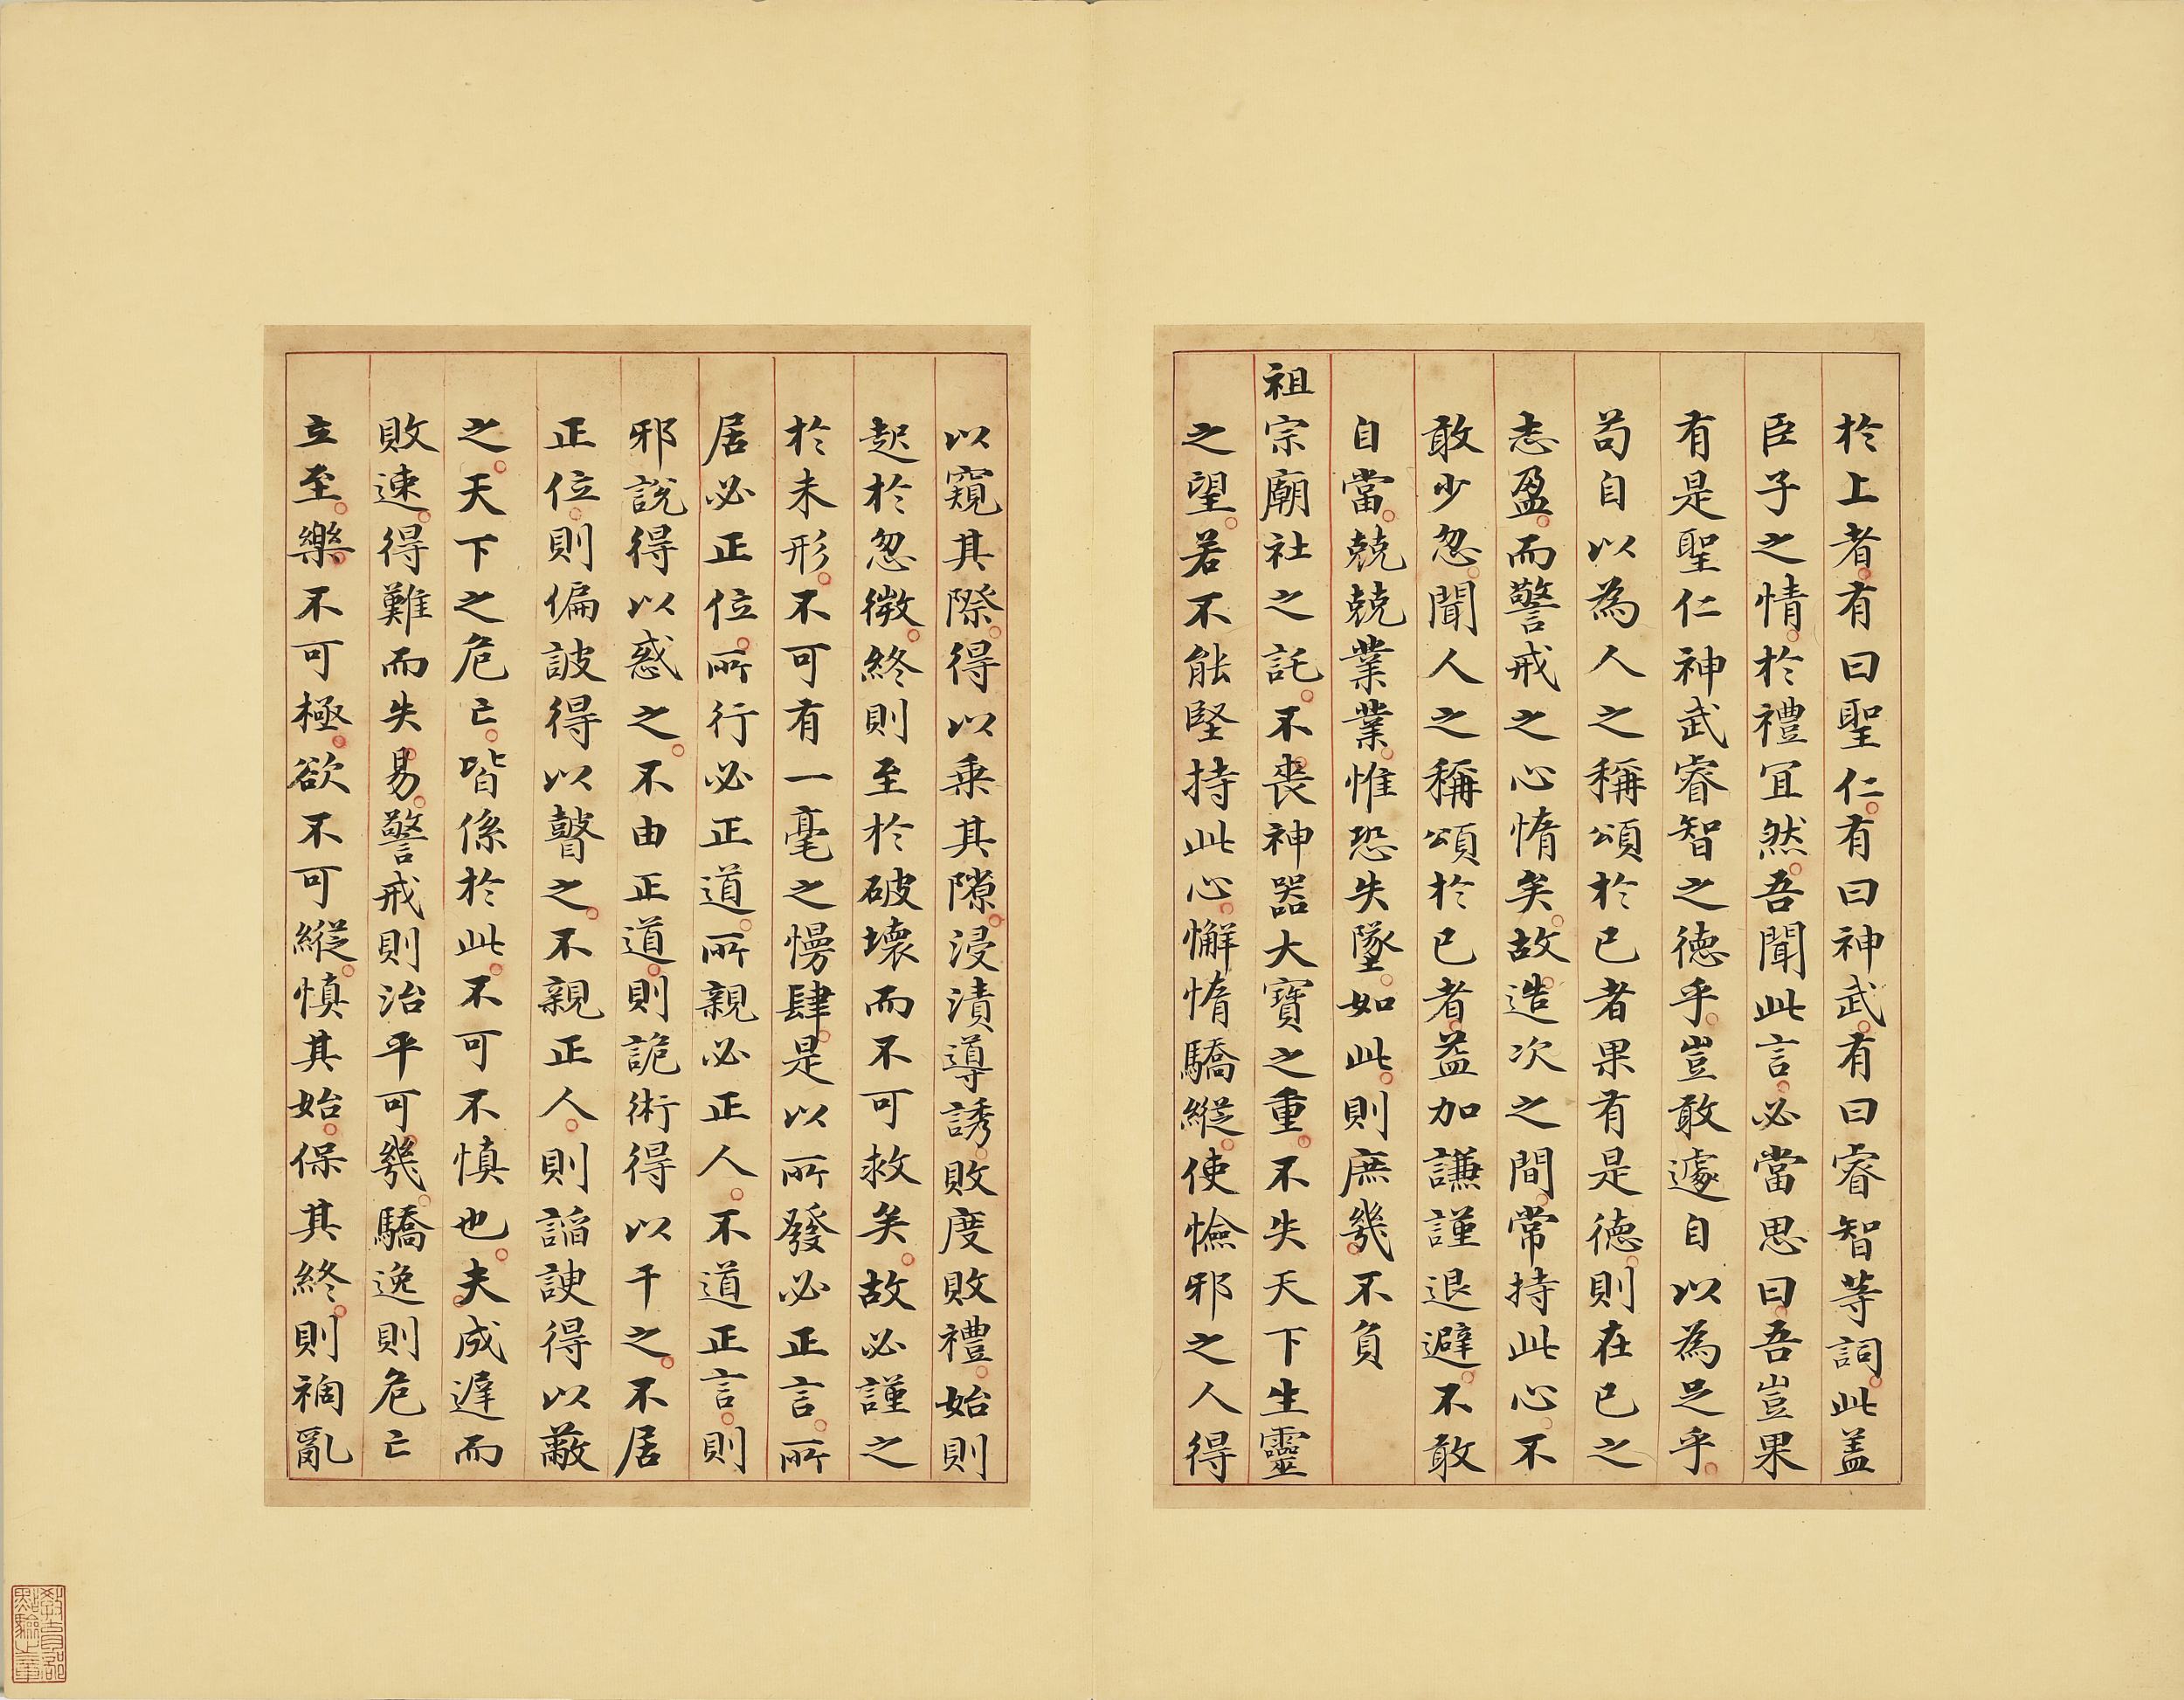 於上者有曰聖仁有曰神武有曰睿智等詞此盖
臣子之情於禮宜然吾聞此言必當思曰吾豈果
有是聖仁神武睿智之德乎豈敢遽自以為足乎
苟自以為人之稱頌於已者果有是德則在已之
志盈而警戒之心惰矣故造次之間常持此心不
敢少忽聞人之稱頌於已者益加謙謹退避不敢
自當兢兢業業惟恐失墜如此則庶幾不負
祖宗廟社之託不喪神器大寶之重不失天下生靈
之望若不能堅持此心懈惰驕縱使憸邪之人得
以窺其際得以乗其隙浸漬導誘敗度敗禮始則
起於忽微終則至於破壞而不可救矣故必謹之
於未形不可有一毫之慢肆是以所發必正言所
居必正位所行必正道所親必正人不道正言則
邪說得以惑之不由正道則詭術得以干之不居
正位則偏詖得以瞽之不親正人則諂諛得以蔽
之天下之危亡皆係於此不可不慎也夫成遲而
敗速得難而失易警戒則治平可幾驕逸則危亡
立至樂不可極欲不可縱慎其始保其終則禍亂
教育部
點驗之章